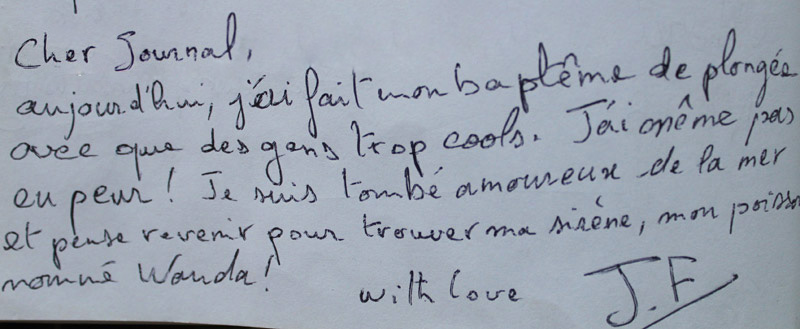 Cher Journal,
aujourd'hui, j'ai fait mon baptême de plongée
avec que des gens trop cools. J'ai même pas
eu peur! Je suis tombé amoureux de la mer
et pense revenir pour trouver ma sirène, mon poisson
nommé Wanda!
with love J.F